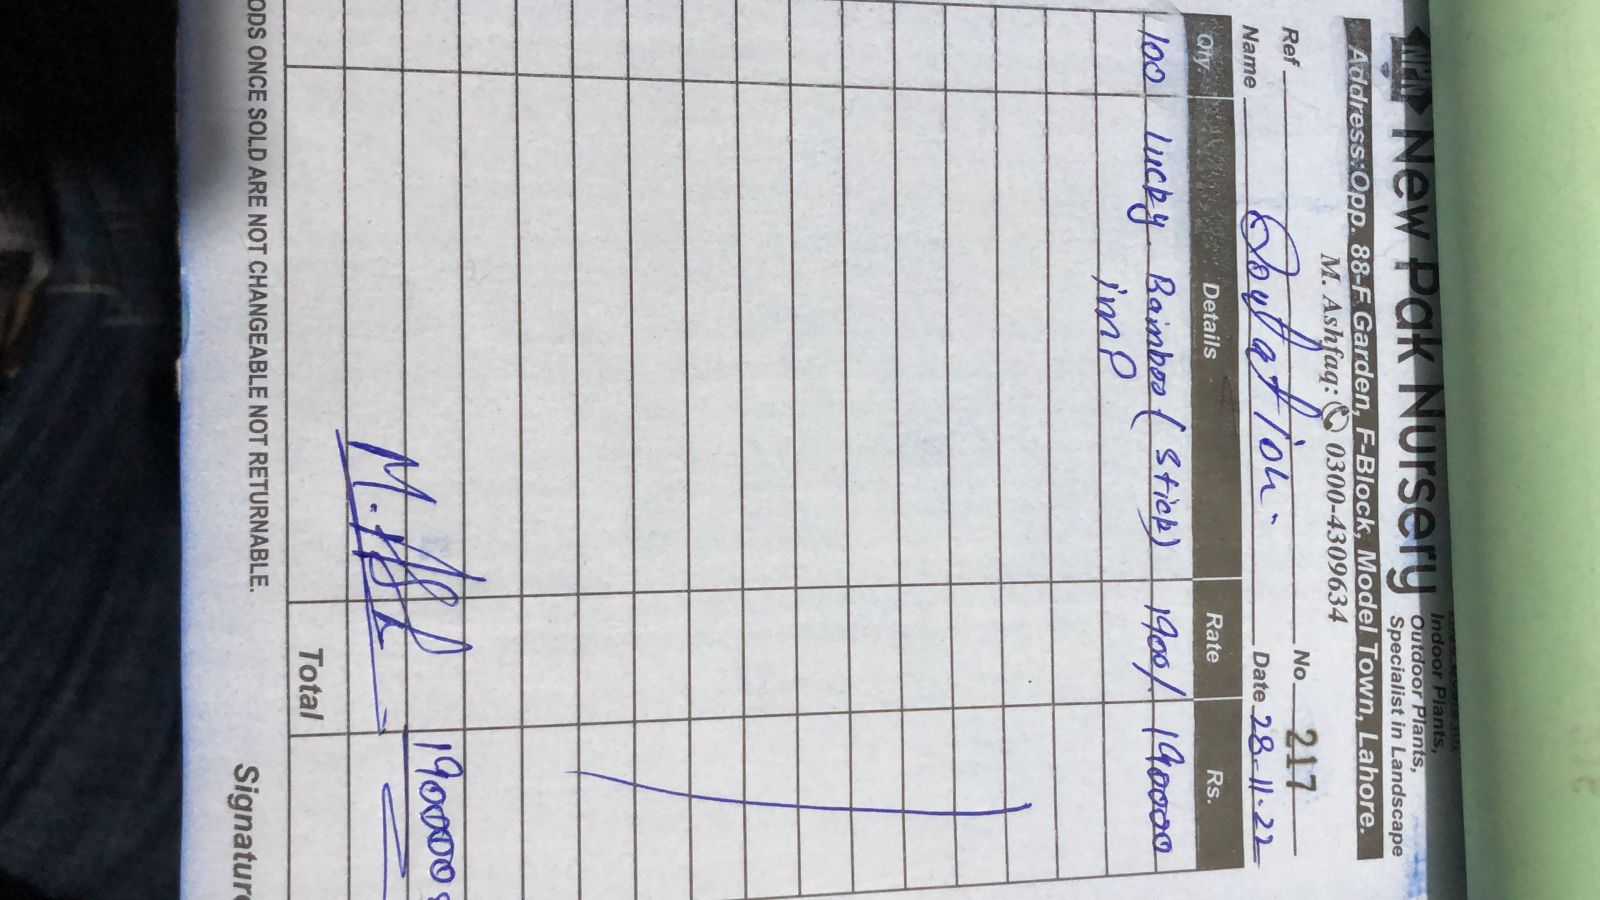 New Pak Nursery
Indoor Plants,
Outdoor Plants,
Specialist in Landscape
Address:Opp. 88-F Garden, F-Block, Model Town, Lahore.
M. Ashfaq: 0300-4309634
Ref No 217
Name Date 28-11-22
Qty. Details Rate Rs.
100 Lucky Bamboo (Stick) 1900/. 190000
imp
190000
Total
ODS ONCE SOLD ARE NOT CHANGEABLE NOT RETURNABLE. Signature